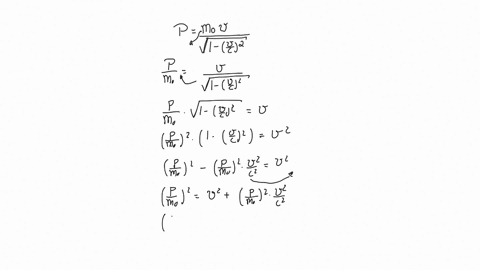 P = m₀ v / √(1 - (v/c)²)
P/m₀ = v / √(1 - (v/c)²)
P/m₀ · √(1 - (v/c)²) = v
(P/m₀)² · (1 · (v/c)²) = v²
(P/m₀)² - (P/m₀)² · v²/c² = v²
(P/m₀)² = v² + (P/m₀)² · v²/c²
(